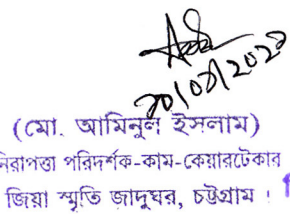 ২০/০৪/২০২৩
(মো. আমিনুল ইসলাম)
নিরাপত্তা পরিদর্শক-কাম-কেয়ারটেকার
জিয়া স্মৃতি জাদুঘর, চট্টগ্রাম।